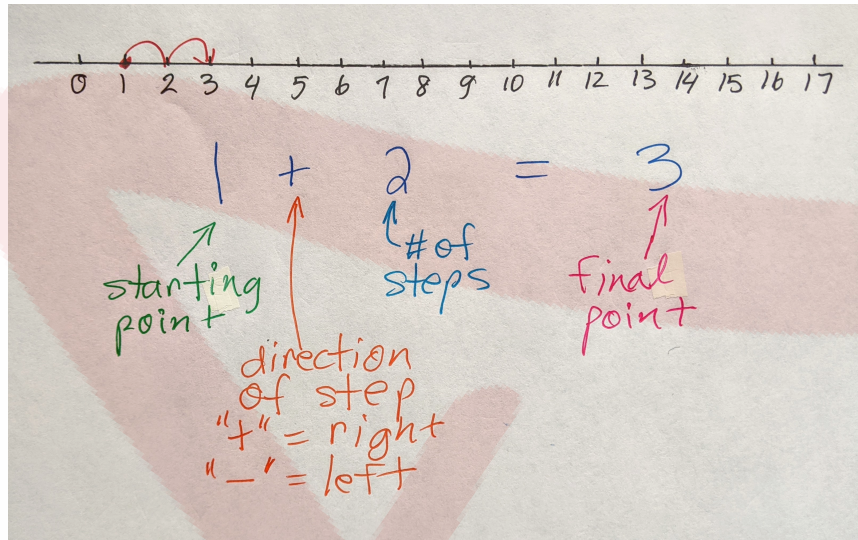 0 1 2 3 4 5 6 7 8 9 10 11 12 13 14 15 16 17
1 + 2 = 3
starting
point
direction
of step
"+" = right
"-" = left
# of
steps
final
point